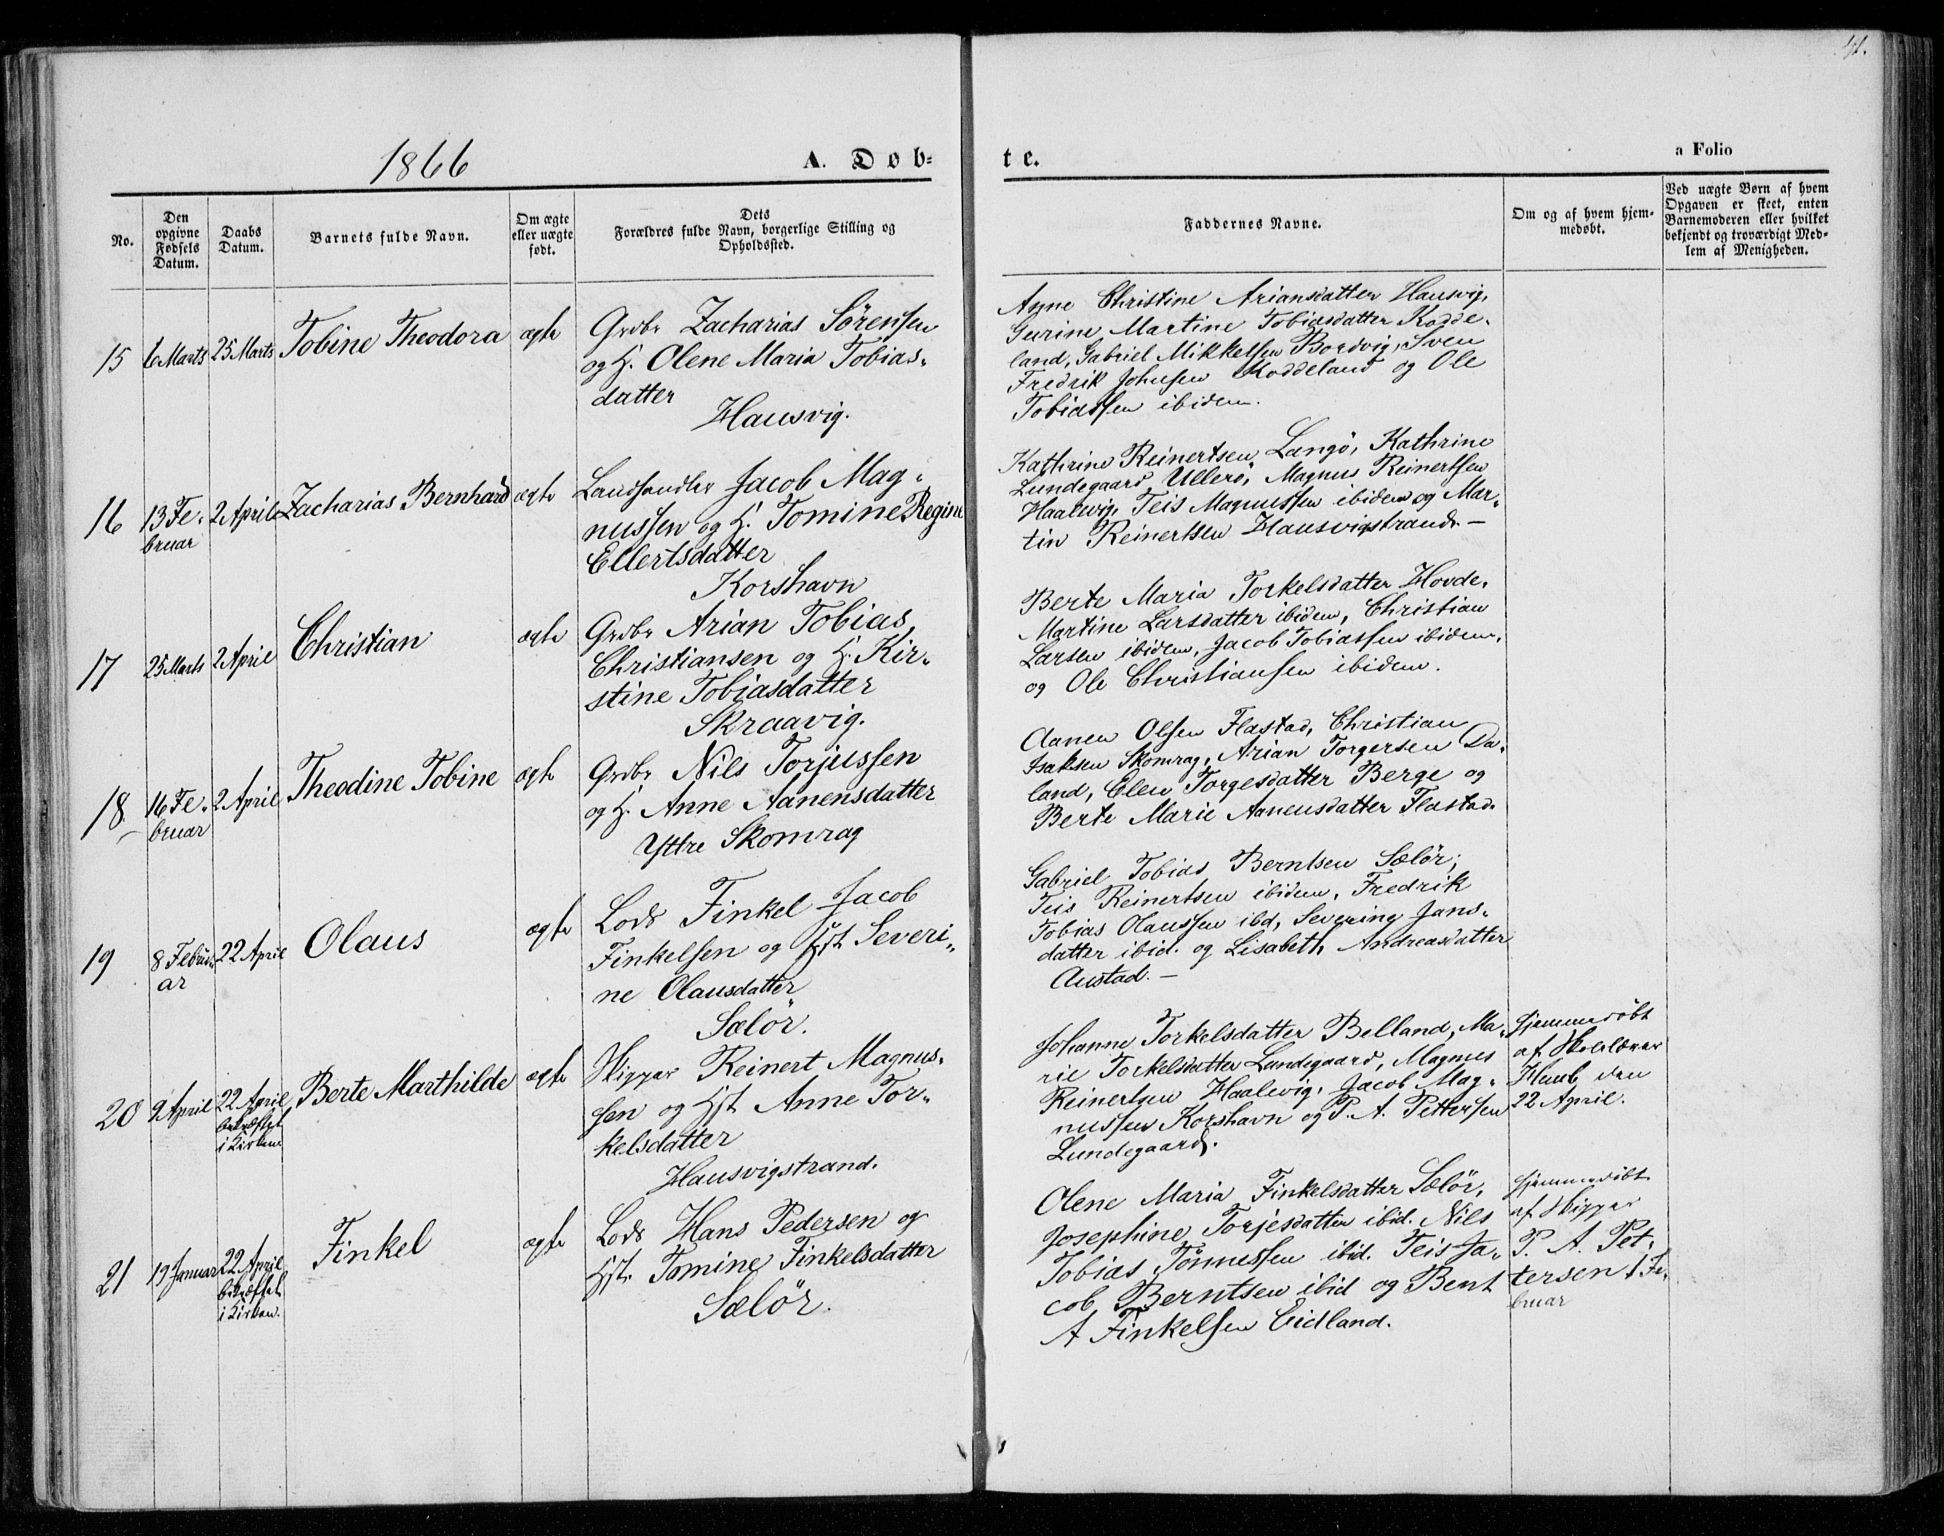 41.
1866
A. Dob-
te.
a Folio
No.
Den
opgivne
Fødsels
Datum.
Daabs
Datum.
Barnets fulde Navn.
Om ægte
eller uægte
født.
Dets
Forældres fulde Navn, borgerlige Stilling og
Opholdssted.
Faddernes Navne.
Om og af hvem hjem-
medøbt.
Ved uægte Børn af hvem
Opgaven er skeet, enten
Barnemoderen eller hvilket
bekjendt og troværdigt Med-
lem af Menigheden.
15
6 Marts
25 Marts
Tobine Theodora
ægte
Grdbr Zacharias Sörensen
og H. Olene Maria Tobias-
datter
Hausvig.
Anne Christine Ariansdatter Hausvig,
Gurine Martine Tobiasdatter Kodde-
land, Gabriel Mikkelsen Bordvig, Sven
Fredrik Johnsen Koddeland og Ole
Tobiassen ibidem.
16
13 Fe-
bruar
2 April
Zacharias Bernhard
ægte
Landhandler Jacob Mag-
nussen og H. Tomine Regine
Ellertsdatter
Korshavn
Kathrine Reinertsen Langö, Kathrine
Lundegaard Ullerö, Magnus Reinertsen
Haalevig, Teis Magnussen ibidem og Mar-
tin Reinertsen Hausvigstrand. —
17
25 Marts
2 April
Christian
ægte
Grdbr Arian Tobias
Christiansen og H. Kir-
stine Tobiasdatter
Skraavig.
Berte Maria Torkelsdatter Hovde,
Martine Larsdatter ibidem, Christian
Larsen ibidem, Jacob Tobiassen ibidem,
og Ole Christiansen ibidem.
18
16 Fe-
bruar
2 April
Theodine Tobine
ægte
Grdbr Nils Torjussen
og H. Anne Aanensdatter
Yttre Skomrag
Aanen Olsen Flastad, Christian
Isaksen Skomrag, Arian Torgersen Da-
land, Elen Torgesdatter Berge og
Berte Marie Aanensdatter Flastad.
19
8 Febru-
ar
22 April
Olaus
ægte
Lods Finkel Jacob
Finkelsen og Hst. Severi-
ne Olausdatter
Sælör.
Gabriel Tobias Berntsen Sælör,
Teis Reinertsen ibidem, Fredrik
Tobias Olaussen ibd, Severine Jans-
datter ibid. og Lisabeth Andreasdatter
Austad. —
20
2 April
22 April
bekræftet
i Kirken.
Berte Marthilde
ægte
Skipper Reinert Magnus-
sen og Hst. Anne Tor-
kelsdatter
Hausvigstrand.
Johanne Torkelsdatter Belland, Ma-
rie Torkelsdatter Lundegaard, Magnus
Reinertsen Haalevig, Jacob Mag-
nussen Korshavn og P. A. Pettersen
Lundegaard.
Hjemmedöbt
af Skolelærer
den
22 April.
21
19 Januar
22 April
bekræftet
i Kirken.
Finkel
ægte
Lods Hans Pedersen og
Hst. Tomine Finkelsdatter
Sælör.
Olene Maria Finkelsdatter Sælör,
Josephine Torjesdatter ibid. Nils
Tobias Tönnessen ibid. Teis Ja-
cob Berntsen ibid og Bent
A Finkelsen Eidland.
Hjemmedöbt
af Skipper
P. A. Pet-
tersen 1 Fe-
bruar